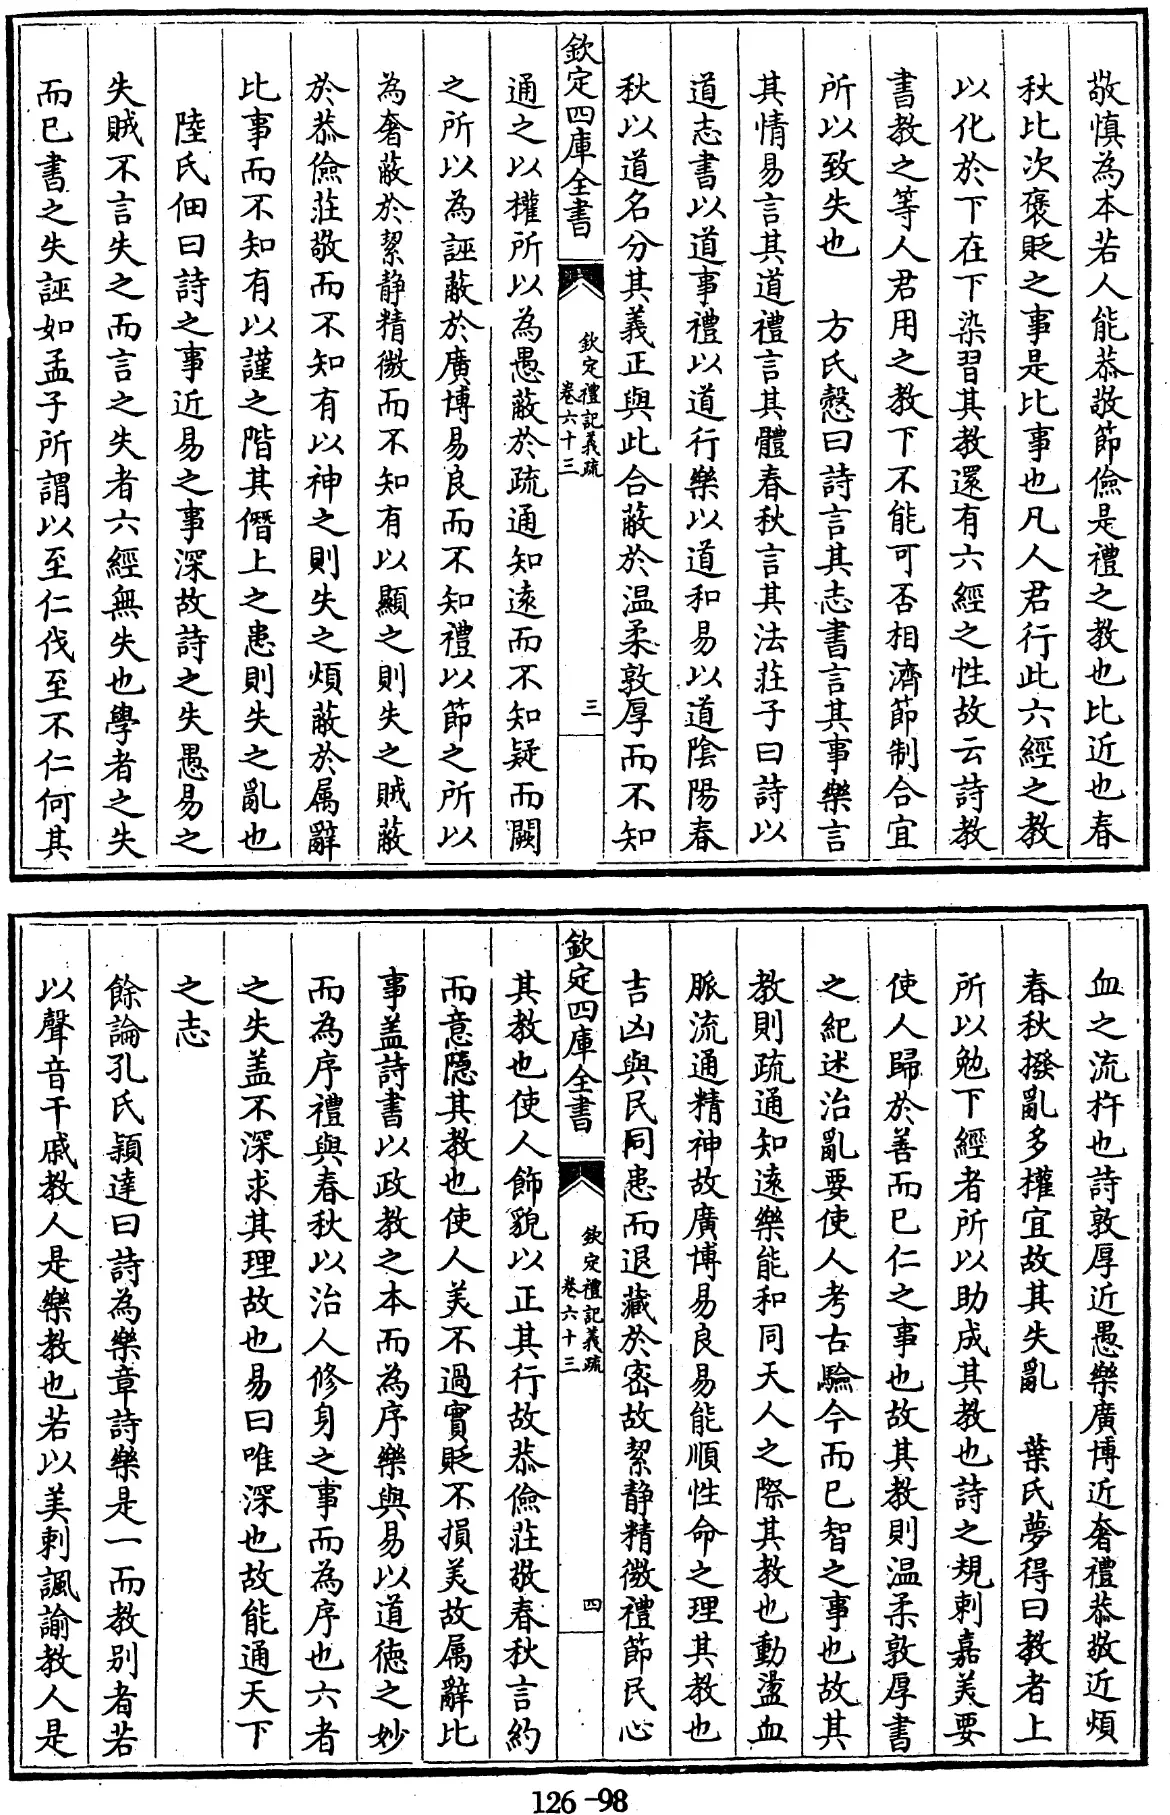 敬慎為本若人能恭敬節儉是禮之教也比近也春
秋比次褒貶之事是比事也凡人君行此六經之教
以化於下在下染習其教還有六經之性故云詩教
書教之等人君用之教下不能可否相濟節制合宜
所以致失也　方氏慤曰詩言其志書言其事樂言
其情易言其道禮言其體春秋言其法莊子曰詩以
道志書以道事禮以道行樂以道和易以道陰陽春
秋以道名分其義正與此合蔽於温柔敦厚而不知
欽定四庫全書
欽定禮記義疏
卷六十三
三
通之以權所以為愚蔽於疏通知逺而不知疑而闕
之所以為誣蔽於廣博易良而不知禮以節之所以
為奢蔽於絜静精微而不知有以顯之則失之賊蔽
於恭儉莊敬而不知有以神之則失之煩蔽於属辭
比事而不知有以謹之階其僭上之患則失之亂也
陸氏佃曰詩之事近易之事深故詩之失愚易之
失賊不言失之而言之失者六經無失也學者之失
而已書之失誣如孟子所謂以至仁伐至不仁何其
血之流杵也詩敦厚近愚樂廣博近奢禮恭敬近煩
春秋撥亂多權宜故其失亂　葉氏夢得曰教者上
所以勉下經者所以助成其教也詩之規刺嘉美要
使人歸於善而已仁之事也故其教則温柔敦厚書
之紀述治亂要使人考古驗今而已智之事也故其
教則疏通知逺樂能和同天人之際其教也動盪血
脈流通精神故廣博易良易能順性命之理其教也
吉凶與民同患而退藏於宻故絜静精微禮節民心
欽定四庫全書
欽定禮記義疏
卷六十三
四
其教也使人飾貌以正其行故恭儉莊敬春秋言約
而意隱其教也使人美不過實貶不損美故属辭比
事盖詩書以政教之本而為序樂與易以道徳之妙
而為序禮與春秋以治人修身之事而為序也六者
之失盖不深求其理故也易曰唯深也故能通天下
之志
餘論孔氏穎達曰詩為樂章詩樂是一而教别者若
以聲音干戚教人是樂教也若以美刺諷諭教人是
126-98